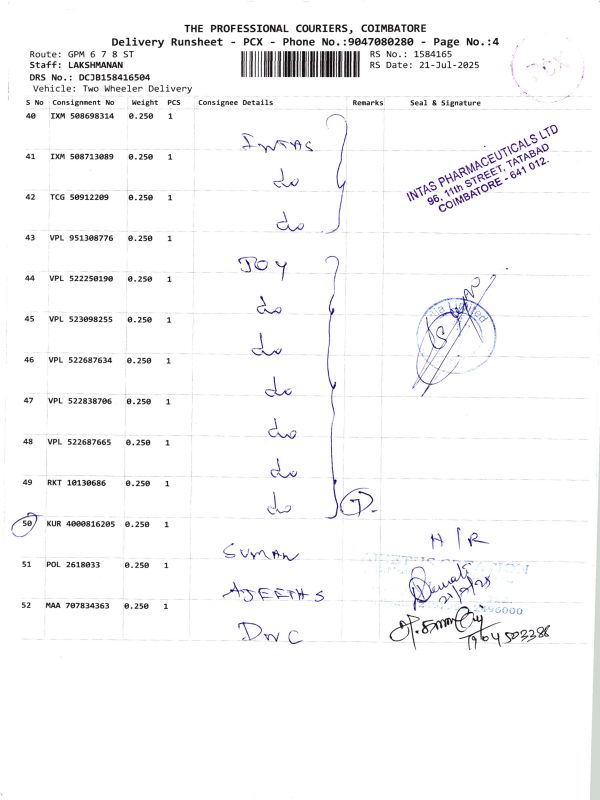 THE PROFESSIONAL COURIERS, COIMBATORE
Delivery Runsheet - PCX - Phone No.:9047080280 - Page No.:4
Route: GPM 6 7 8 ST
RS No.: 1584165
Staff: LAKSHMANAN
RS Date: 21-Jul-2025
DRS No.: DCJB158416504
Vehicle: Two Wheeler Delivery
PCX
S No Consignment No Weight PCS Consignee Details Remarks Seal & Signature
40 IXM 508698314 0.250 1
INTAS
INTAS PHARMACEUTICALS LTD
96, 11th STREET, TATABAD
COIMBATORE - 641 012.
41 IXM 508713089 0.250 1
do
42 TCG 50912209 0.250 1
do
43 VPL 951308776 0.250 1
JOY
44 VPL 522250190 0.250 1
do
45 VPL 523098255 0.250 1
do
46 VPL 522687634 0.250 1
do
47 VPL 522838706 0.250 1
do
48 VPL 522687665 0.250 1
do
49 RKT 10130686 0.250 1
do 7.
50 KUR 4000816205 0.250 1
SUMAN N/R
51 POL 2618033 0.250 1
AJEETHS
52 MAA 707834363 0.250 1
DWC